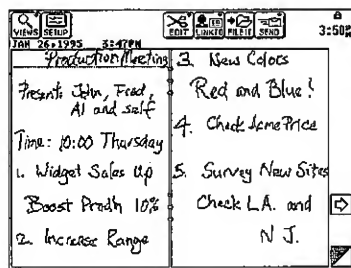 VIEWS SETUP EDIT LINKTO FILEIT SEND 3:50P
JAN 26,1995 3:47PM
Production Meeting
Present: John, Fred,
Al and self
Time: 10:00 Thursday
1. Widget Sales Up
Boost Prodn 10%
2. Increase Range
3. New Colors
Red and Blue!
4. Check Acme Price
5. Survey New Sites
Check L.A. and
N J.